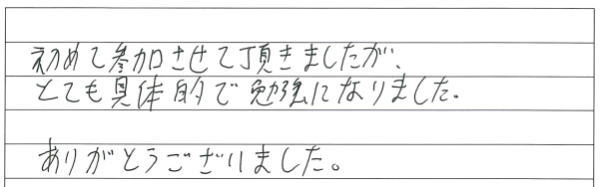 初めて参加させて頂きましたが、
とても具体的で勉強になりました。
ありがとうございました。